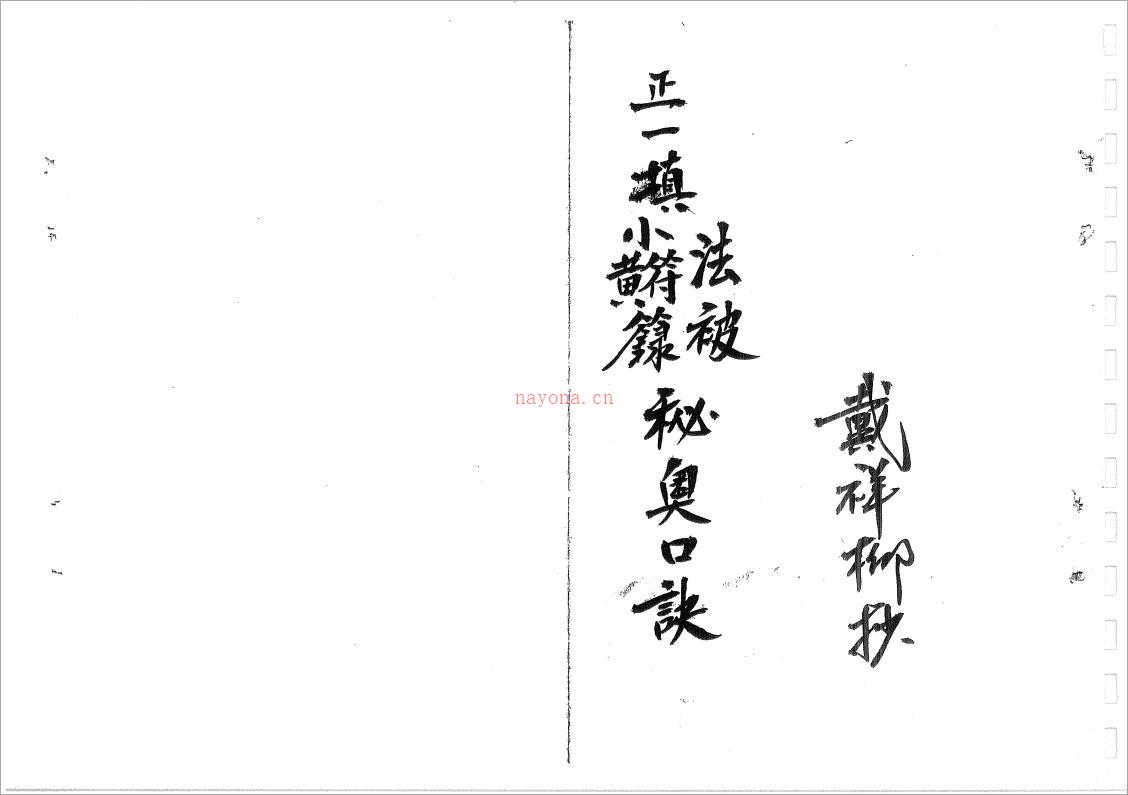 戴祥柳抄
法被
正一填小符黄籙秘奥口訣
nayona.cn